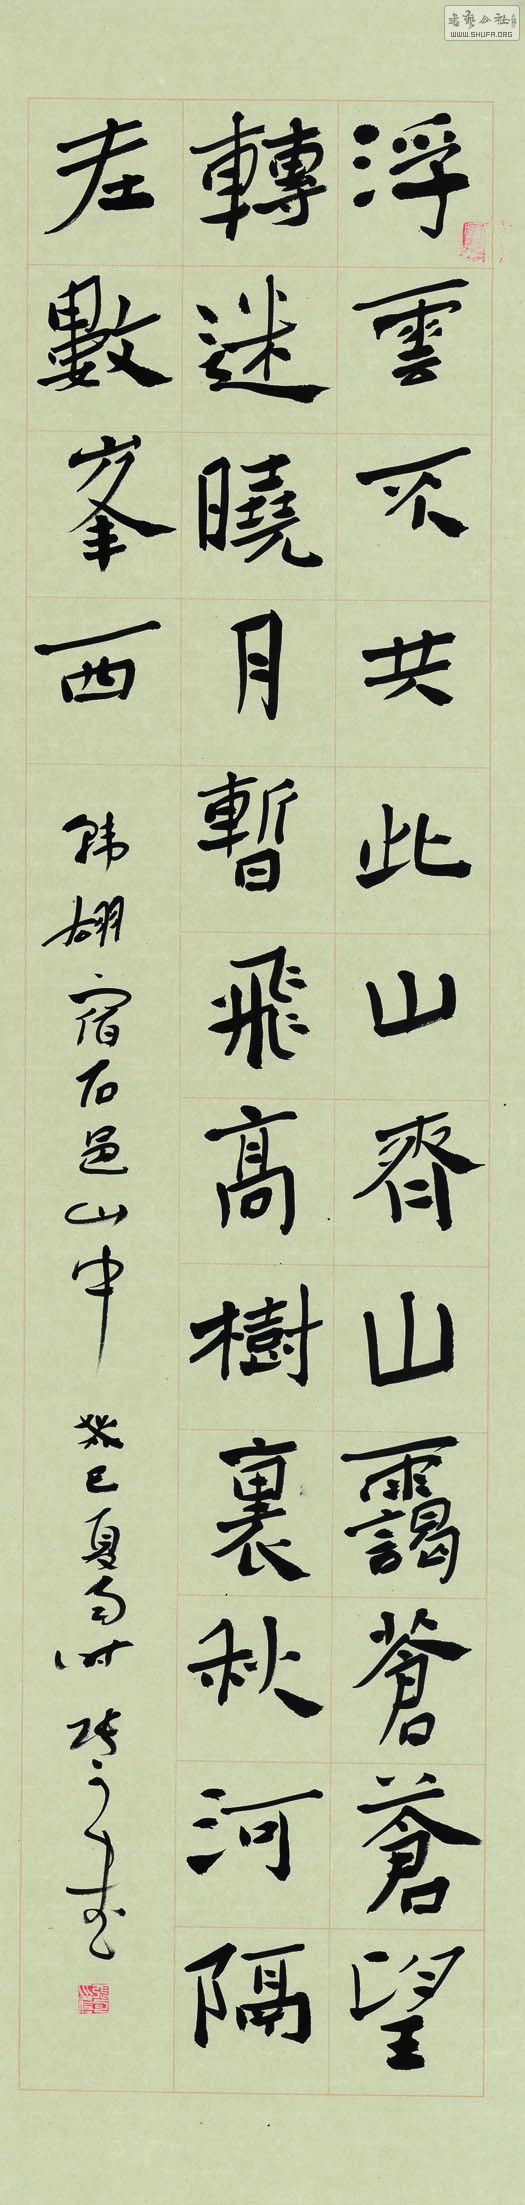 浮雲不共此山齊山靄蒼蒼望
轉迷曉月暫飛高樹裏秋河隔
在數峯西
韓翃宿石邑山中 癸巳夏
书艺公社
WWW.SHUFA.ORG